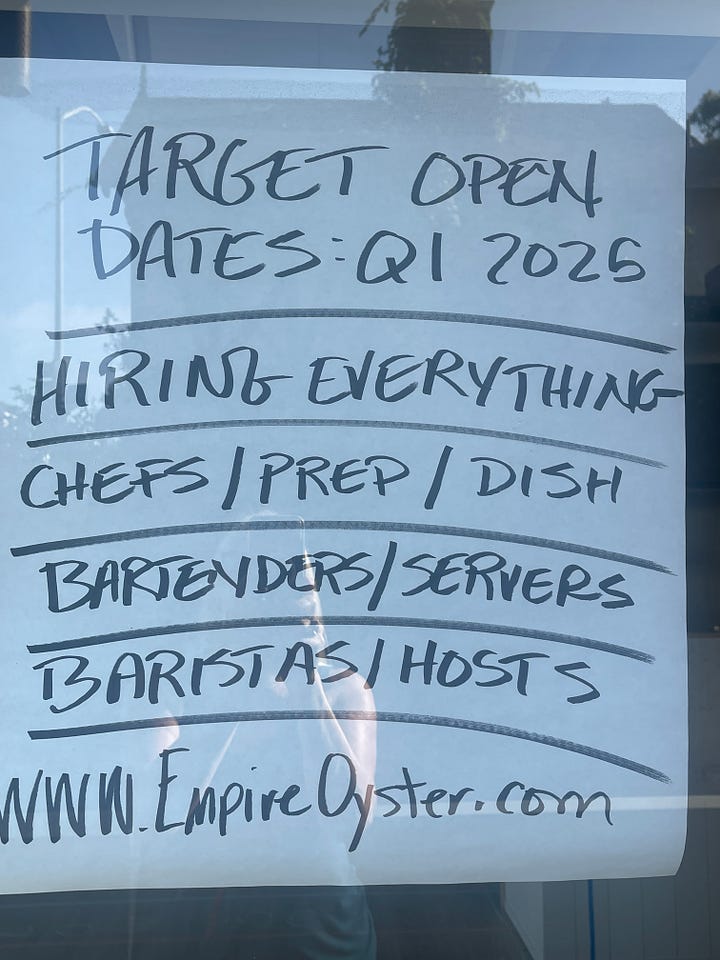 TARGET OPEN
DATES: Q1 2025
HIRING EVERYTHING
CHEFS/PREP/DISH
BARTENDERS/SERVERS
BARISTAS/HOSTS
WWW.EmpireOyster.com